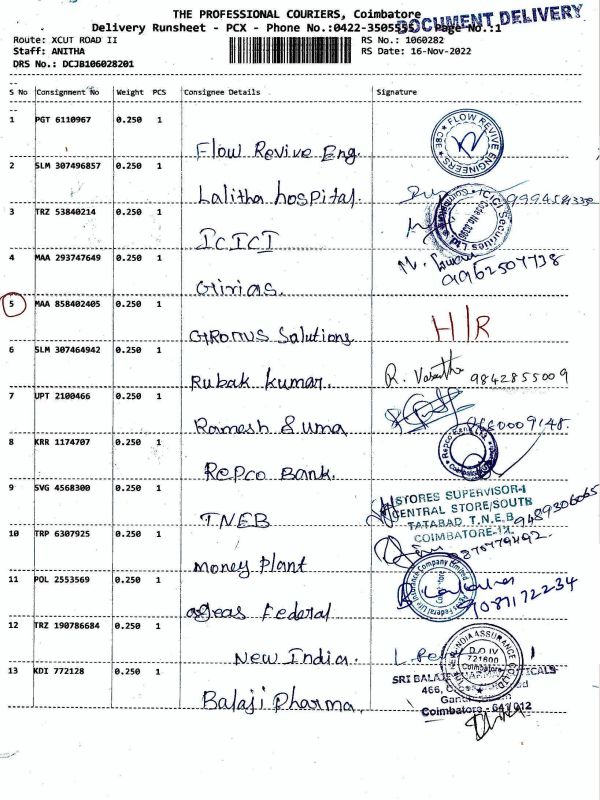 THE PROFESSIONAL COURIERS, Coimbatore
DOCUMENT DELIVERY
Delivery Runsheet - PCX - Phone No.:0422-3505555 Page No.:1
Route: XCUT ROAD II RS No.: 1060282
Staff: ANITHA RS Date: 16-Nov-2022
DRS No.: DCJB106028201
S No Consignment No Weight PCS Consignee Details Signature
1 PGT 6110967 0.250 1
Flow Revive Eng.
FLOW REVIVE ENGINEERS CBE
2 SLM 307496857 0.250 1
Lalitha hospital.
3 TRZ 53840214 0.250 1
ICICI
ICICI Securities Ltd
4 MAA 293747649 0.250 1
Girias.
9962507738
5 MAA 858402405 0.250 1
Solutions
H/R
6 SLM 307464942 0.250 1
Rubak kumar.
R. Vasantha 9842855009
7 UPT 2100466 0.250 1
Ramesh & uma
8 KRR 1174707 0.250 1
Repco Bank.
9 SVG 4568300 0.250 1
TNEB
STORES SUPERVISOR-I
CENTRAL STORE/SOUTH
TATABAD T.N.E.B
COIMBATORE-12.
9489306065
10 TRP 6307925 0.250 1
Money Plant
11 POL 2553569 0.250 1
ageas Federal
Ageas Federal Life Insurance Company Limited
9087172234
12 TRZ 190786684 0.250 1
New India.
INDIA ASSURANCE
D.O IV
721600
Coimbatore
13 KDI 772128 0.250 1
Balaji Pharma.
SRI BALAJI
466,
Coimbatore - 641 012